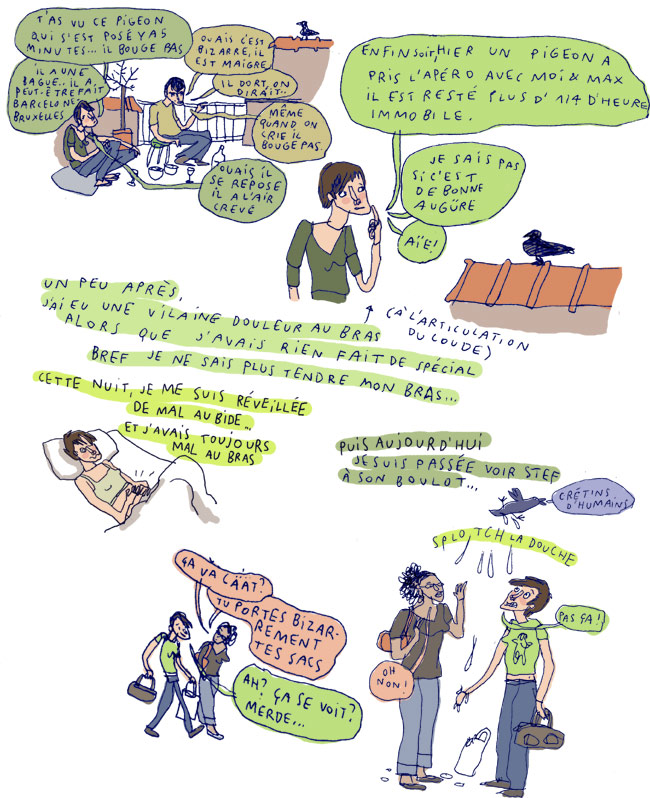 T'AS VU CE PIGEON
QUI S'EST POSÉ Y A 5
MINUTES... IL BOUGE PAS
OUAIS C'EST
BIZARRE, IL
EST MAIGRE
IL A UNE
BAGUE.. IL A
PEUT-ÊTRE FAIT
BARCELONE
BRUXELLES
IL DORT, ON
DIRAIT..
MÊME
QUAND ON
CRIE IL
BOUGE PAS
OUAIS IL
SE REPOSE
IL A L'AIR
CREVÉ
ENFIN SOIT, HIER UN PIGEON A
PRIS L'APÉRO AVEC MOI & MAX
IL EST RESTÉ PLUS D'1/4 D'HEURE
IMMOBILE.
JE SAIS PAS
SI C'EST
DE BONNE
AUGÜRE
AÏE!
UN PEU APRÈS,
J'AI EU UNE VILAINE DOULEUR AU BRAS
(À L'ARTICULATION
DU COUDE)
ALORS QUE J'AVAIS RIEN FAIT DE SPÉCIAL
BREF JE NE SAIS PLUS TENDRE MON BRAS...
CETTE NUIT, JE ME SUIS RÉVEILLÉE
DE MAL AU BIDE...
ET J'AVAIS TOUJOURS
MAL AU BRAS
PUIS AUJOURD'HUI
JE SUIS PASSÉE VOIR STEF
À SON BOULOT...
CRÉTINS
D'HUMAINS
SPLOTCH LA DOUCHE
ÇA VA CÄÄT?
TU PORTES BIZAR-
REMENT
TES SACS
AH? ÇA SE VOIT?
MERDE...
PAS ÇA!
OH
NON!